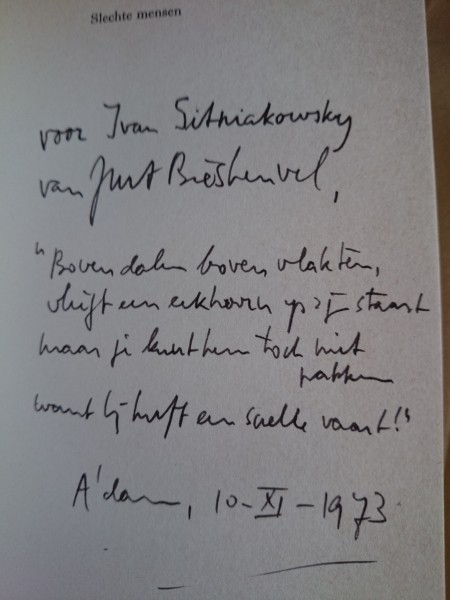 Slechte mensen
voor Ivan Sitniakowsky
van Maarten Biesheuvel,
"Boven dalen boven vlakten,
vliegt een eekhoorn op z'n staart
maar je kunt hem toch niet
pakken
want hij heeft een snelle vaart!"
A'dam, 10-XI-1973